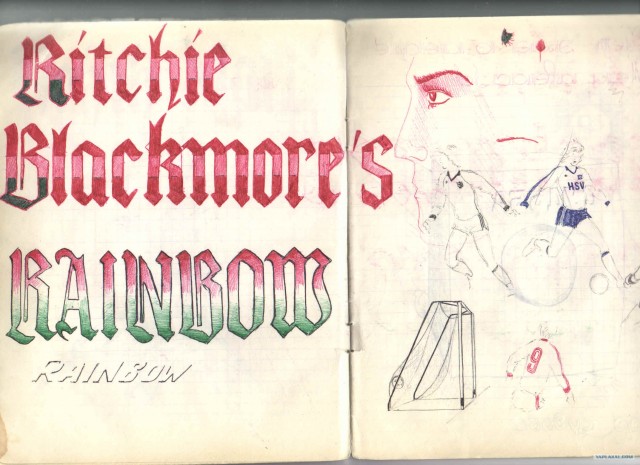 Ritchie
Blackmore's
RAINBOW
RAINBOW
HSV
9